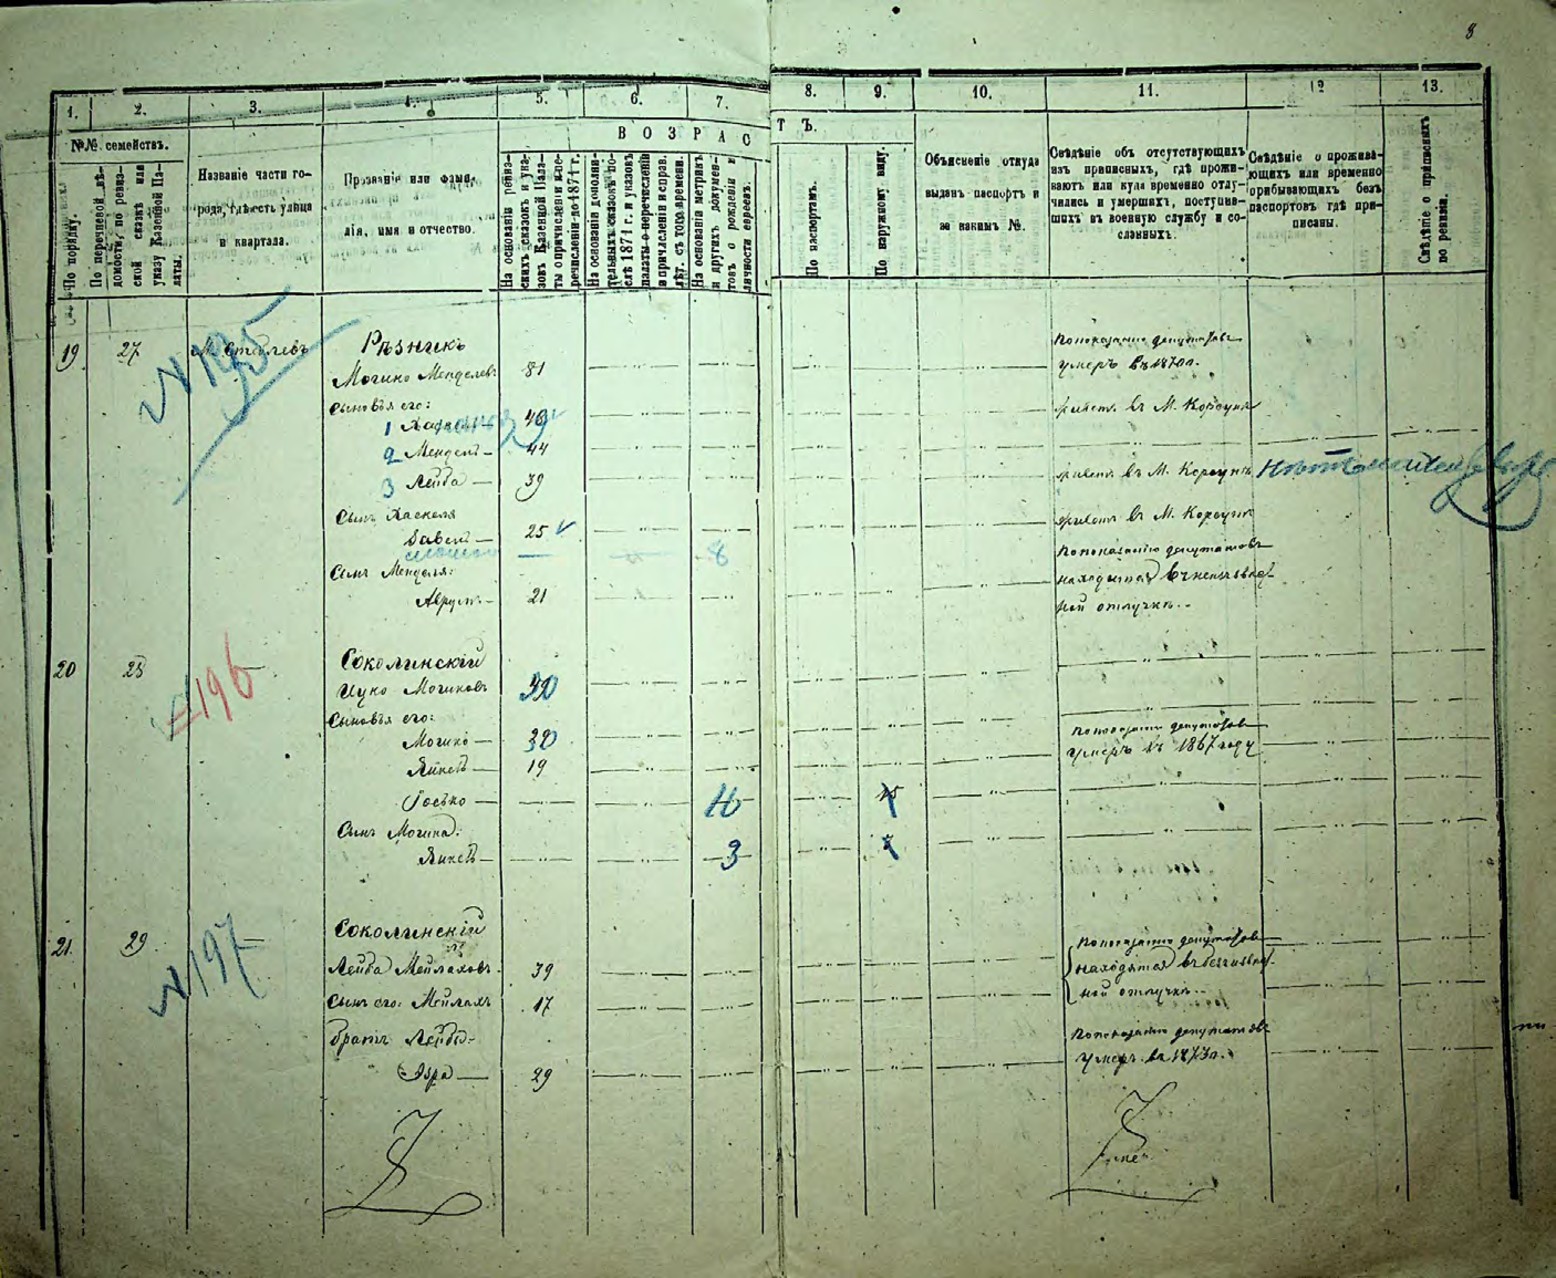 8
1. 2. 3. 4. 5. 6. 7. 8. 9. 10. 11. 12 13.
№№ семействъ.
По порядку.
По перечневой вѣдомости, по ревизской сказкѣ или указу Казенной Палаты.
Названіе части го-
рода, гдѣ есть улица
и квартала.
Прозваніе или фами-
лія, имя и отчество.
ВОЗРАСТЪ.
На основаніи ревиз-
скихъ сказокъ и ука-
зовъ Казенной Пала-
ты о причисленіи и пе-
речисленіи до 1874 г.
На основаніи дополни-
тельныхъ сказокъ по-
слѣ 1874 г. и указовъ
палаты о перечисленіи
и причисленіи и справ.
лѣт. съ того времени.
На основаніи метрикъ
и другихъ докумен-
товъ о рожденіи и
личности евреевъ.
По паспортамъ.
По наружному виду.
Объясненіе откуда
выданъ паспортъ и
за какимъ №.
Свѣдѣніе объ отсутствующихъ
изъ приписныхъ, гдѣ прожи-
ваютъ или куда временно отлу-
чились и умершихъ, поступив-
шихъ въ военную службу и со-
сланныхъ.
Свѣдѣніе о прожива-
ющихъ или временно
прибывающихъ безъ
паспортовъ гдѣ при-
писаны.
Свѣдѣніе о приписныхъ
по ревизіи.
19 27 Резникъ
№ 195
Мошко Менделевъ 81
По показанію депутатовъ
умеръ въ 1870 г.
Сыновья его:
1 Хаскель 46 живетъ въ М. Корсунѣ
2 Мендель 44
3 Лейба 39 живетъ въ М. Корсунѣ
Сынъ Хаскеля
25 живетъ въ М. Корсунѣ
8
Сынъ Менделя:
21
По показанію депутатовъ
находится въ неизвѣст-
ной отлучкѣ.
20 28 Соколинскій
№ 196
Ицко Мошковъ
Сыновья его:
Мошко
По показанію депутатовъ
умеръ въ 1867 году
Янкель 19
Іосько
Сынъ Мошка:
Янкель 3
21 29 Соколинскій
№ 197
Лейба Мейлаховъ 39
По показанію депутатовъ
находятся въ безызвѣст-
ной отлучкѣ.
Сынъ его: Мейлахъ 17
Братъ Лейбы
29
По показанію депутатовъ
умеръ въ 1873 г.